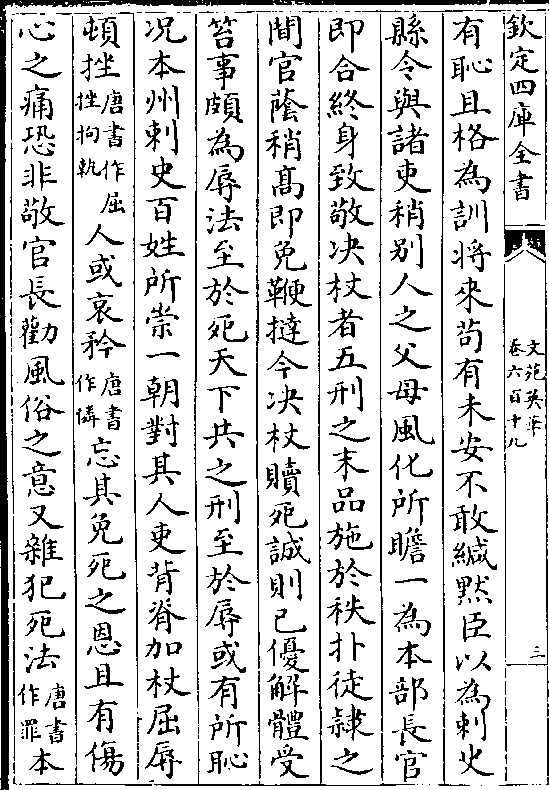 欽定四庫全書
文苑英華
卷六百十九
三
有恥且格為訓將來苟有未安不敢緘默臣以為刺史
縣令與諸吏稍别人之父母風化所瞻一為本部長官
即合終身致敬決杖者五刑之末品施於秩扑徒隸之
間官蔭稍髙即免鞭撻今决杖贖死誠則已優解體受
笞事頗為辱法至於死天下共之刑至於辱或有所恥
况本州刺史百姓所崇一朝對其人吏背脊加杖屈辱
頓挫唐書作屈挫拘執人或哀矜唐書作憐忘其免死之恩且有傷
心之痛恐非敬官長勸風俗之意又雜犯死法唐書作罪本